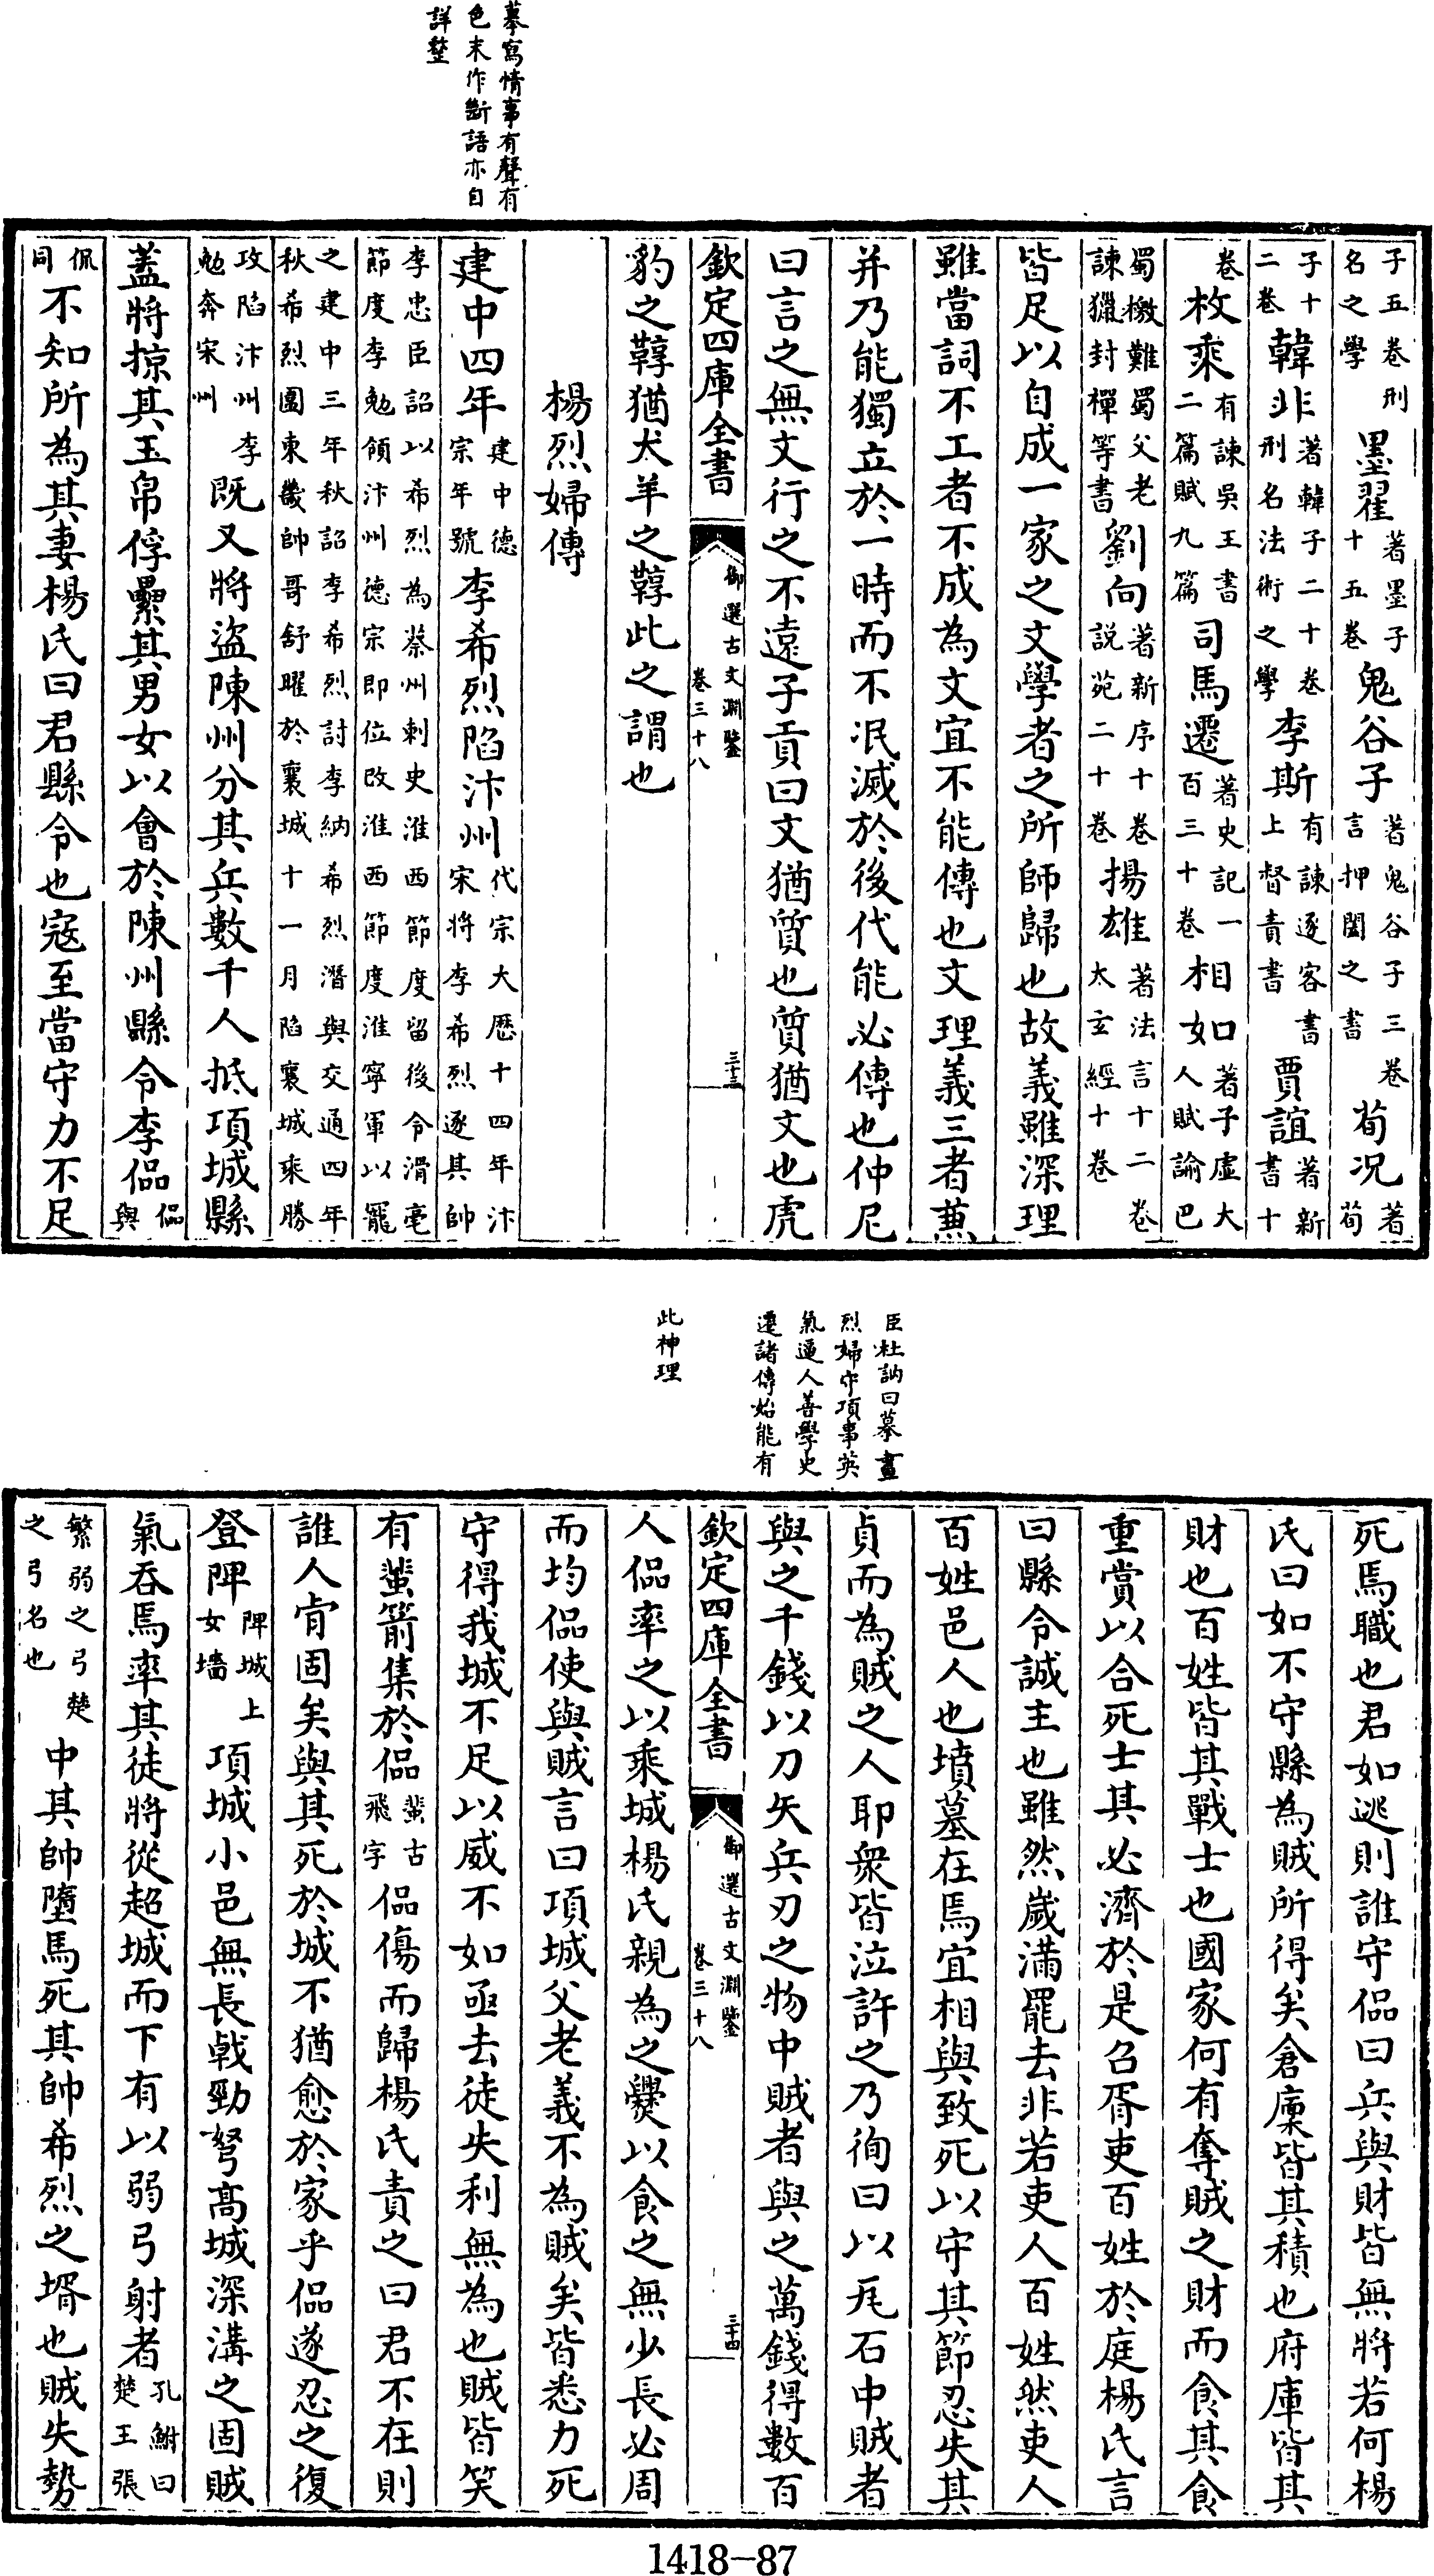 摹寫情事有聲有
色末作斷語亦自
詳整
子五卷刑名之學墨翟著墨子十五卷鬼谷子著鬼谷子三卷言押闔之書荀况著荀
子十二卷韓非著韓子二十卷刑名法術之學李斯有諫逐客書上督責書賈誼著新書十
卷枚乘有諫吳王書二篇賦九篇司馬遷著史記一百三十卷相如著子虛大人賦論巴
蜀檄難蜀父老諫獵封禪等書劉向著新序十卷說苑二十卷揚雄著法言十二卷太玄經十卷
皆足以自成一家之文學者之所師歸也故義雖深理
雖當詞不工者不成為文宜不能傳也文理義三者兼
并乃能獨立於一時而不泯滅於後代能必傳也仲尼
曰言之無文行之不遠子貢曰文猶質也質猶文也虎
欽定四庫全書 御選古文淵鑒 卷三十八 三十三
豹之鞟猶犬羊之鞟此之謂也
楊烈婦傳
建中四年建中德宗年號李希烈陷汴州代宗大厯十四年汴宋將李希烈逐其帥
李忠臣詔以希烈為蔡州刺史淮西節度留後令滑亳節度李勉領汴州德宗即位改淮西節度淮寧軍以寵
之建中三年秋詔李希烈討李納希烈潛與交通四年秋希烈圍東畿帥哥舒曜於襄城十一月陷襄城乘勝
攻陷汴州李勉奔宋州既又將盜陳州分其兵數千人抵項城縣
蓋將掠其玉帛俘纍其男女以會於陳州縣令李侃侃與
侃同不知所為其妻楊氏曰君縣令也寇至當守力不足
臣杜訥曰摹畫
烈婦守項事英
氣逼人善學史
遷諸傳始能有
此神理
死焉職也君如逃則誰守侃曰兵與財皆無將若何楊
氏曰如不守縣為賊所得矣倉廩皆其積也府庫皆其
財也百姓皆其戰士也國家何有奪賊之財而食其食
重賞以令死士其必濟於是召胥吏百姓於庭楊氏言
曰縣令誠主也雖然歲滿罷去非若吏人百姓然吏人
百姓邑人也墳墓在焉宜相與致死以守其節忍失其
貞而為賊之人耶衆皆泣許之乃徇曰以瓦石中賊者
與之千錢以刀矢兵刃之物中賊者與之萬錢得數百
欽定四庫全書 御選古文淵鑒 卷三十八 三十四
人侃率之以乘城楊氏親為之爨以食之無少長必周
而均侃使與賊言曰項城父老義不為賊矣皆悉力死
守得我城不足以威不如亟去徒失利無為也賊皆笑
有蜚箭集於侃蜚古飛字侃傷而歸楊氏責之曰君不在則
誰人肯固矣與其死於城不猶愈於家乎侃遂忍之復
登陴陴城上女墻項城小邑無長戟勁弩高城深溝之固賊
氣吞焉率其徒將從超城而下有以弱弓射者孔鮒曰楚王張
繁弱之弓楚之弓名也中其帥墮馬死其帥希烈之壻也賊失勢
1418-87